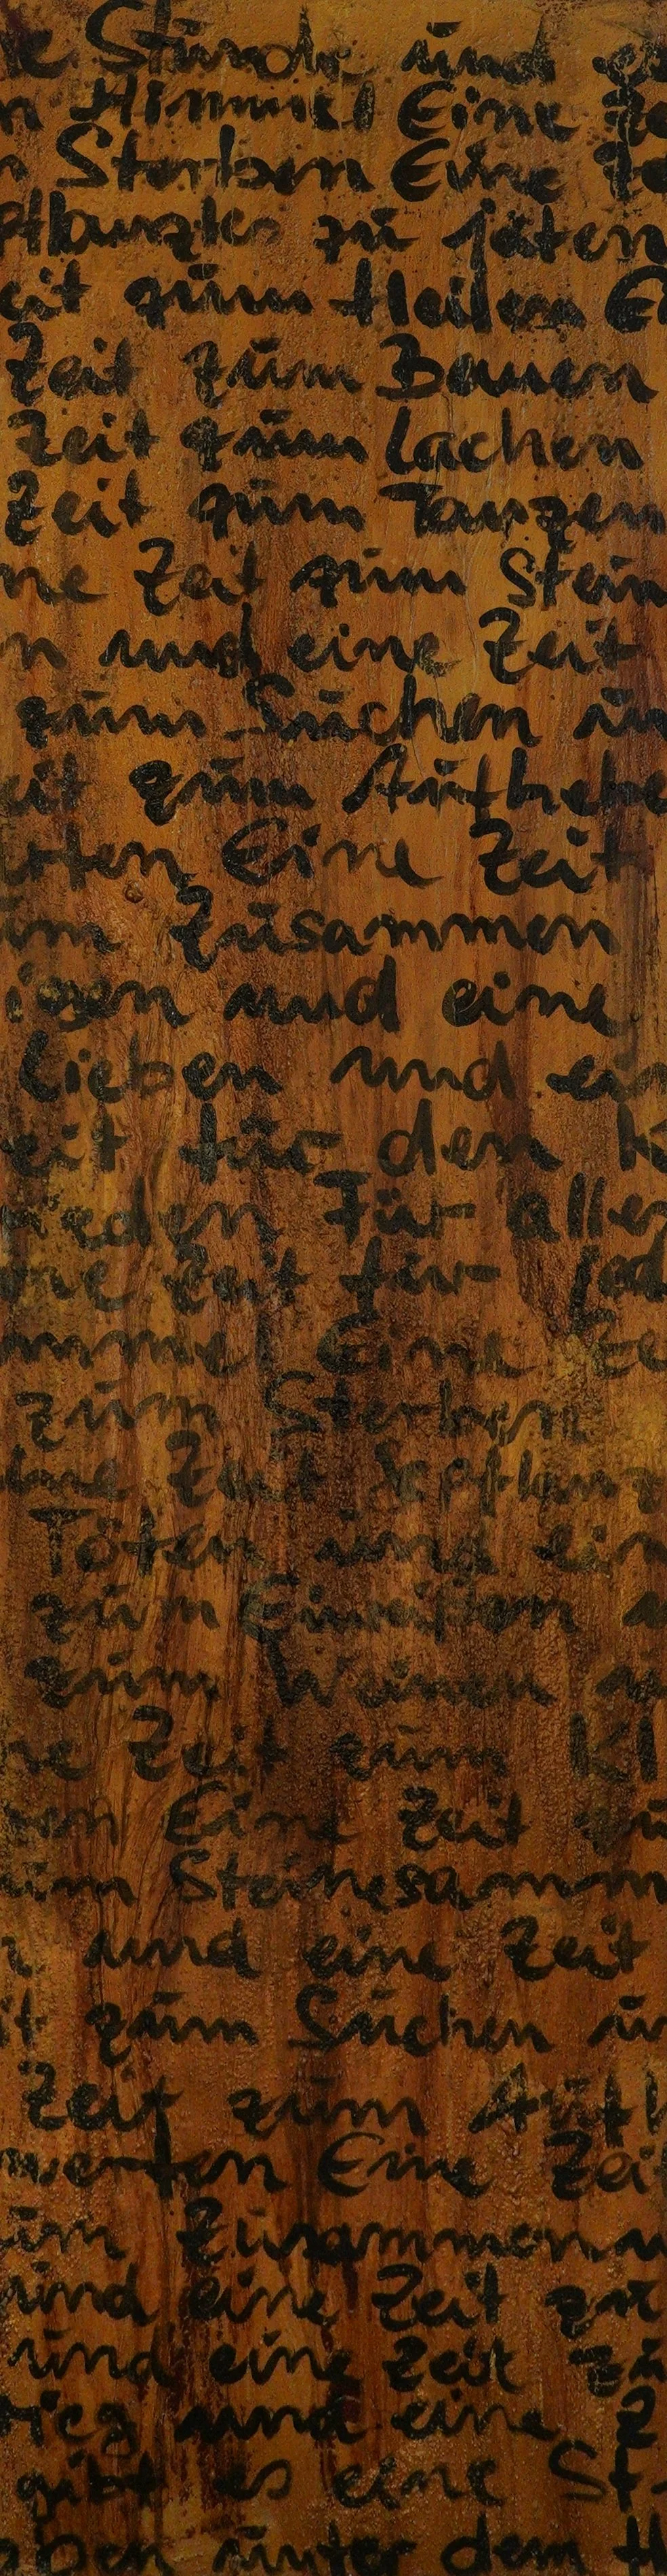 e Stunde und ei
n Himmel Eine Ze
n Sterben Eine Ze
pflanztes zu jäten
eit zum Heilen Ei
Zeit zum Bauen
Zeit zum Lachen
Zeit zum Tanzen
ne Zeit zum Stein
n und eine Zeit
zum Suchen un
eit zum Aufhebe
rten Eine Zeit
um Zusammen
igen und eine
Lieben und ein
eit für den K
ieden Für alles
ne Zeit für jed
immel Eine Ze
zum Sterben
ine Zeit Gepflanz
Töten und ein
zum Einreißen
zum Weinen u
ne Zeit zum Kl
en Eine Zeit
um Steinesamm
n und eine Zeit
it zum Suchen un
Zeit zum Auf
werfen Eine Zei
um Zusammenn
und eine Zeit zu
und eine Zeit zu
rieg und eine Z
gibt es eine St
aben unter dem H